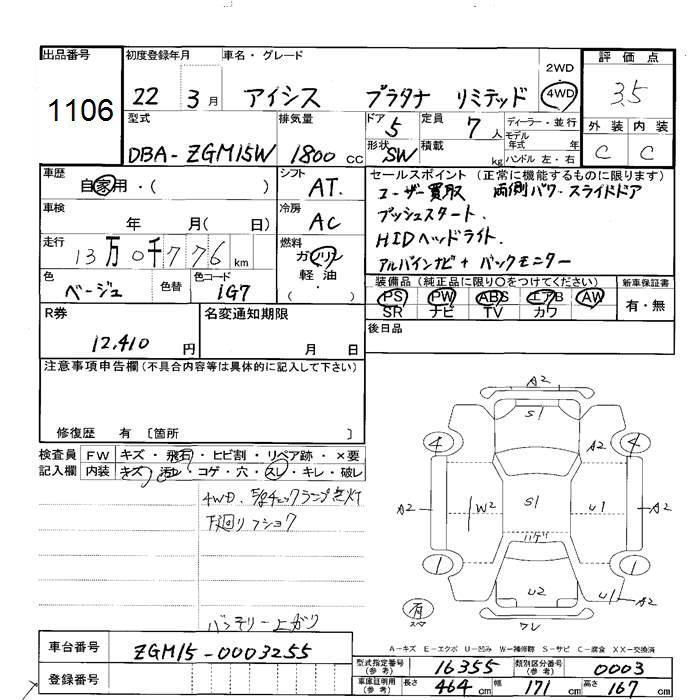 出品番号 1106
初度登録年月 22 3月
車名・グレード アイシス プラタナ リミテッド
2WD 4WD
評価点 3.5
外装 C 内装 C
型式 DBA-ZGM15W
排気量 1800 cc
ドア 5 形状 SW
定員 7 人
積載 kg
ディーラー・並行
モデル年式 年
ハンドル 左・右
車歴 自家用・( )
シフト AT.
車検 年 月( 日)
冷房 AC
走行 13万0千776 km
燃料 ガソリン 軽油 ( ・ )
色 ベージュ 色替
色コード 1G7
セールスポイント (正常に機能するものに限ります)
ユーザー買取 両側パワースライドドア
プッシュスタート.
HIDヘッドライト.
アルパインナビ+バックモニター
装備品(純正品に限り○をつけてください)
PS PW ABS エアB AW
SR ナビ TV カワ
新車保証書 有・無
R券 12,410 円
名変通知期限 月 日
後日品
注意事項申告欄(不具合内容等は具体的に記入して下さい)
修復歴 有 〔箇所 〕
検査員記入欄
FW キズ・飛石・ヒビ割・リペア跡・×要
内装 キズ・汚レ・コゲ・穴・スレ・キレ・破レ
下廻りフショク
バッテリー上ガリ
A2
S1
4 A2 4
A2 W2 S1 U1 A2
ハゲ
1 1
U2 U1 A2
有 スペア
ワレ
A-キズ E-エクボ U-凹み W-補修跡 S-サビ C-腐食 XX-交換済
車台番号 ZGM15-0003255
登録番号
型式指定番号(参考) 16355
類別区分番号(参考) 0003
車庫証明用(参考) 長さ 464 cm 幅 171 cm 高さ 167 cm